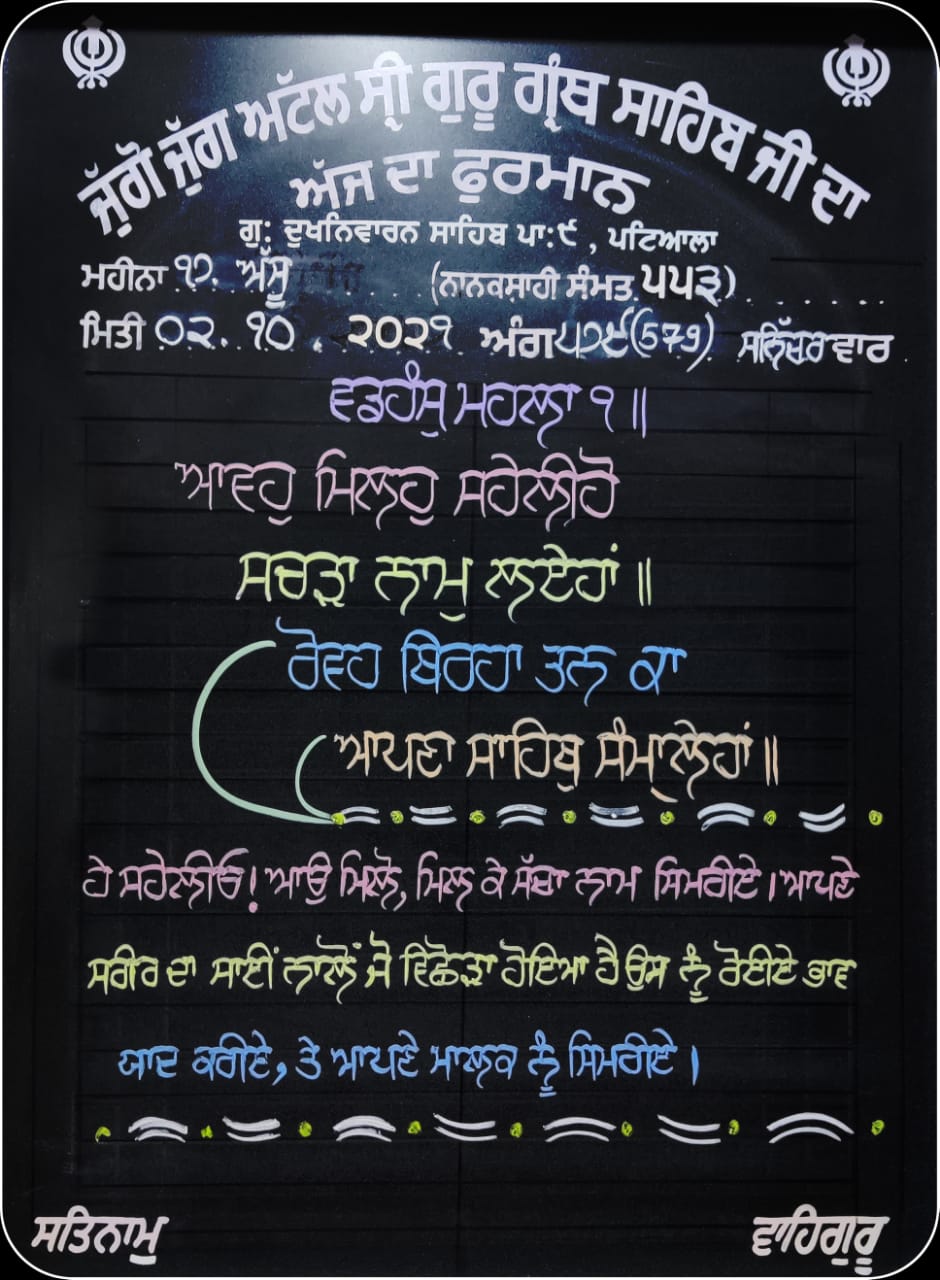 ਜੁੱਗੋ ਜੁੱਗ ਅਟੱਲ ਸ੍ਰੀ ਗੁਰੂ ਗ੍ਰੰਥ ਸਾਹਿਬ ਜੀ ਦਾ
ਅੱਜ ਦਾ ਫੁਰਮਾਨ
ਗੁ: ਦੁਖਨਿਵਾਰਨ ਸਾਹਿਬ ਪਾ:੯ , ਪਟਿਆਲਾ
ਮਹੀਨਾ ੧੭. ਅੱਸੂ (ਨਾਨਕਸ਼ਾਹੀ ਸੰਮਤ ੫੫੩)
ਮਿਤੀ ੦੨. ੧੦ . ੨੦੨੧ ਅੰਗ ੫੭੯(579) ਸਨਿੱਚਰਵਾਰ
ਵਡਹੰਸੁ ਮਹਲਾ ੧ ॥
ਆਵਹੁ ਮਿਲਹੁ ਸਹੇਲੀਹੋ
ਸਚੜਾ ਨਾਮੁ ਲਏਹਾਂ ॥
ਰੋਵਹ ਬਿਰਹਾ ਤਨ ਕਾ
ਆਪਣਾ ਸਾਹਿਬੁ ਸੰਮ੍ਹਾਲੇਹਾਂ ॥
ਹੇ ਸਹੇਲੀਓ! ਆਉ ਮਿਲੋ, ਮਿਲ ਕੇ ਸੱਚਾ ਨਾਮ ਸਿਮਰੀਏ । ਆਪਣੇ
ਸਰੀਰ ਦਾ ਸਾਈਂ ਨਾਲੋਂ ਜੋ ਵਿਛੋੜਾ ਹੋਇਆ ਹੈ ਉਸ ਨੂੰ ਰੋਈਏ ਭਾਵ
ਯਾਦ ਕਰੀਏ, ਤੇ ਆਪਣੇ ਮਾਲਕ ਨੂੰ ਸਿਮਰੀਏ ।
ਸਤਿਨਾਮੁ
ਵਾਹਿਗੁਰੂ